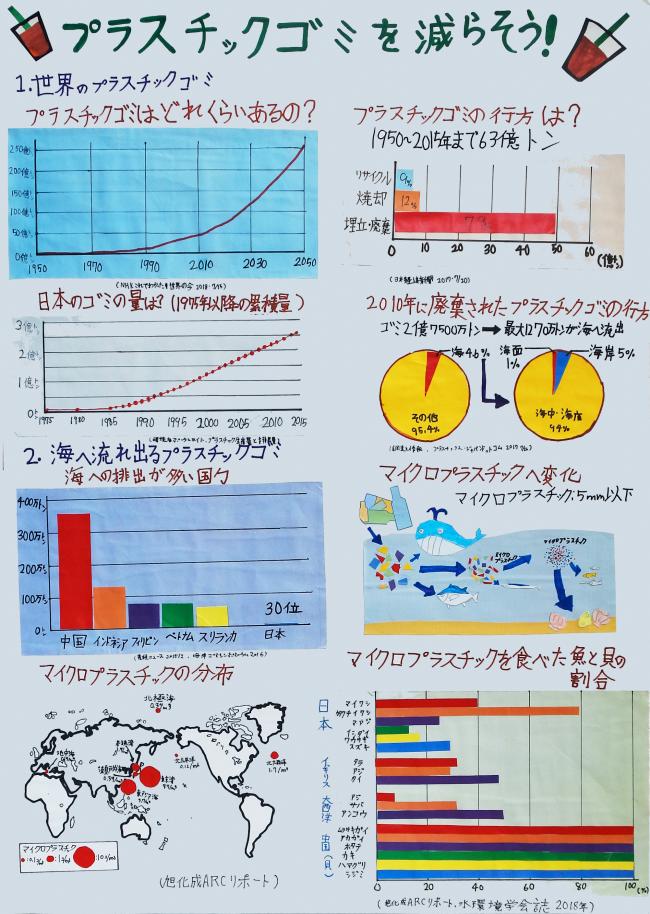 プラスチックゴミを減らそう!
1.世界のプラスチックゴミ
プラスチックゴミはどれくらいあるの?
250億トン
200億トン
150億トン
100億トン
50億トン
0億トン
1950 1970 1990 2010 2030 2050
プラスチックゴミの行方は?
1950~2015年まで63億トン
リサイクル 9%
焼却 12%
埋立・廃棄
0 10 20 30 40 50 60 (億トン)
日本のゴミの量は?(1975年以降の累積量)
3億トン
2億トン
1億トン
0
1975 1980 1985 1990 1995 2000 2005 2010 2015
2010年に廃棄されたプラスチックゴミの行方
ゴミ2億7500万トン→最大1270万トンが海へ流出
海4.6%
その他
95.4%
海面
1%
海岸5%
海中・海底
94%
2.海へ流れ出るプラスチックゴミ
海への排出が多い国々
400万トン
300万トン
200万トン
100万トン
0トン
30位
中国 インドネシア フィリピン ベトナム スリランカ 日本
マイクロプラスチックへ変化
マイクロプラスチック:5mm以下
マイクロプラスチック
マイクロプラスチック
マイクロプラスチックの分布
北極海
地中海
北太平洋
北大西洋
東アジア海
マイクロプラスチック
(旭化成ARCリポート)
マイクロプラスチックを食べた魚と貝の
割合
日本
マイワシ
カタクチイワシ
マアジ
ワカサギ
スズキ
イギリス
タラ
アジ
タイ
大西洋
アジ
サバ
アンコウ
中国(貝)
ムラサキガイ
アカガイ
ホタテ
カキ
ハマグリ
シジミ
0 20 40 60 80 100 (%)
(旭化成ARCリポート、水環境学会誌 2018年)